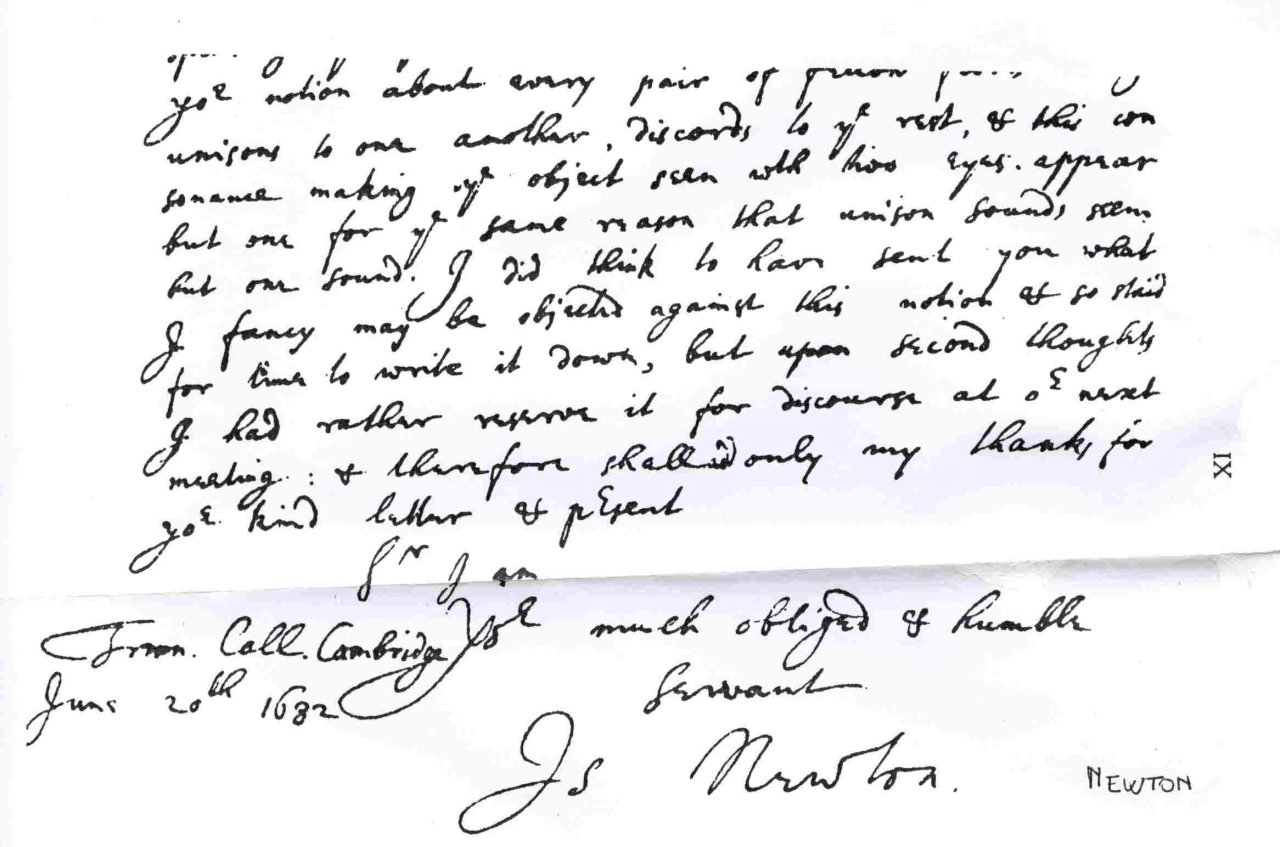 yor notion about every pair of
unisons to one another, discords to ye rest, & this con
sonance making ye object seen wth two eyes appear
but one for ye same reason that unison sounds seem
but one sound. I did think to have sent you what
I fancy may be objected against this notion & so staid
for time to write it down, but upon second thoughts
I had rather reserve it for discourse at or next
meeting: & therefore shall add only my thanks for
yor kind letter & present
Sr I am
Yor much obliged & humble
Servant
Trin. Coll. Cambridge
June 20th 1682
Is Newton.
NEWTON
IX